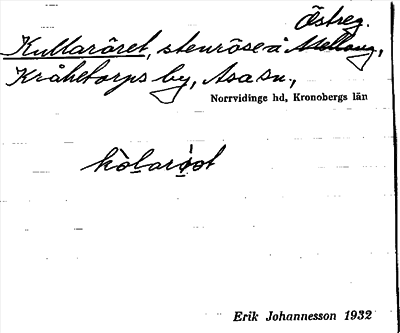 Östreg.
Kullaröret, stenröse å Mellang,
Kråketorps by, Asa sn.,
Norrvidinge hd, Kronobergs län
kòlarǿst
Erik Johannesson 1932